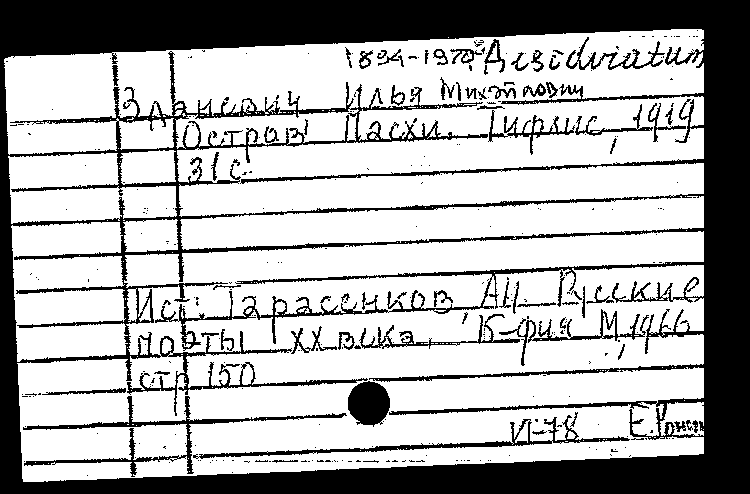 1894-1975 Desideratum
Зданевич Илья Михайлович
Остров Пасхи. Тифлис, 1919
31 с.
Ист: Тарасенков, А.Н. Русские
поэты XX века. К-фия М., 1966
стр 150
VI-78 Е.